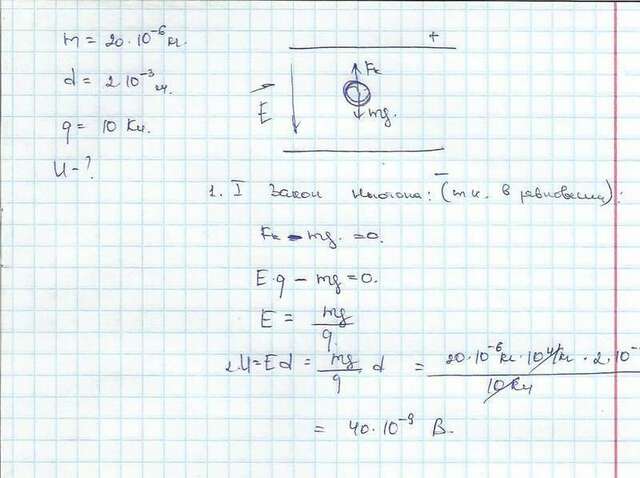 m = 20·10⁻⁶ кг.
d = 2 10⁻³ м.
q = 10 Кл.
U - ?
+
Fк
E
mg.
−
1. I Закон Ньютона: (т.к. в равновесии):
Fк - mg. = 0.
E·q − mg = 0.
E = mg / q.
2. U = Ed = mg / q d = 20·10⁻⁶ кг · 10 · 2·10⁻ / 10 Кл
= 40·10⁻⁹ В.